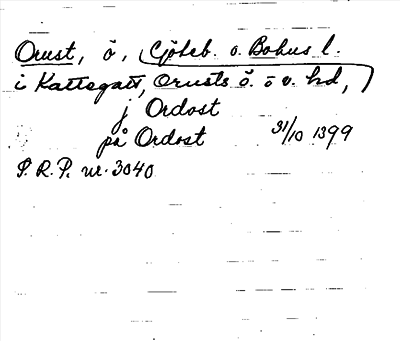 Orust, ö, (Göteb. o. Bohus l.
i Kattegatt, Orusts ö. o v. hd,)
j Ordost
på Ordost 31/10 1399
S. R. P. nr. 3040